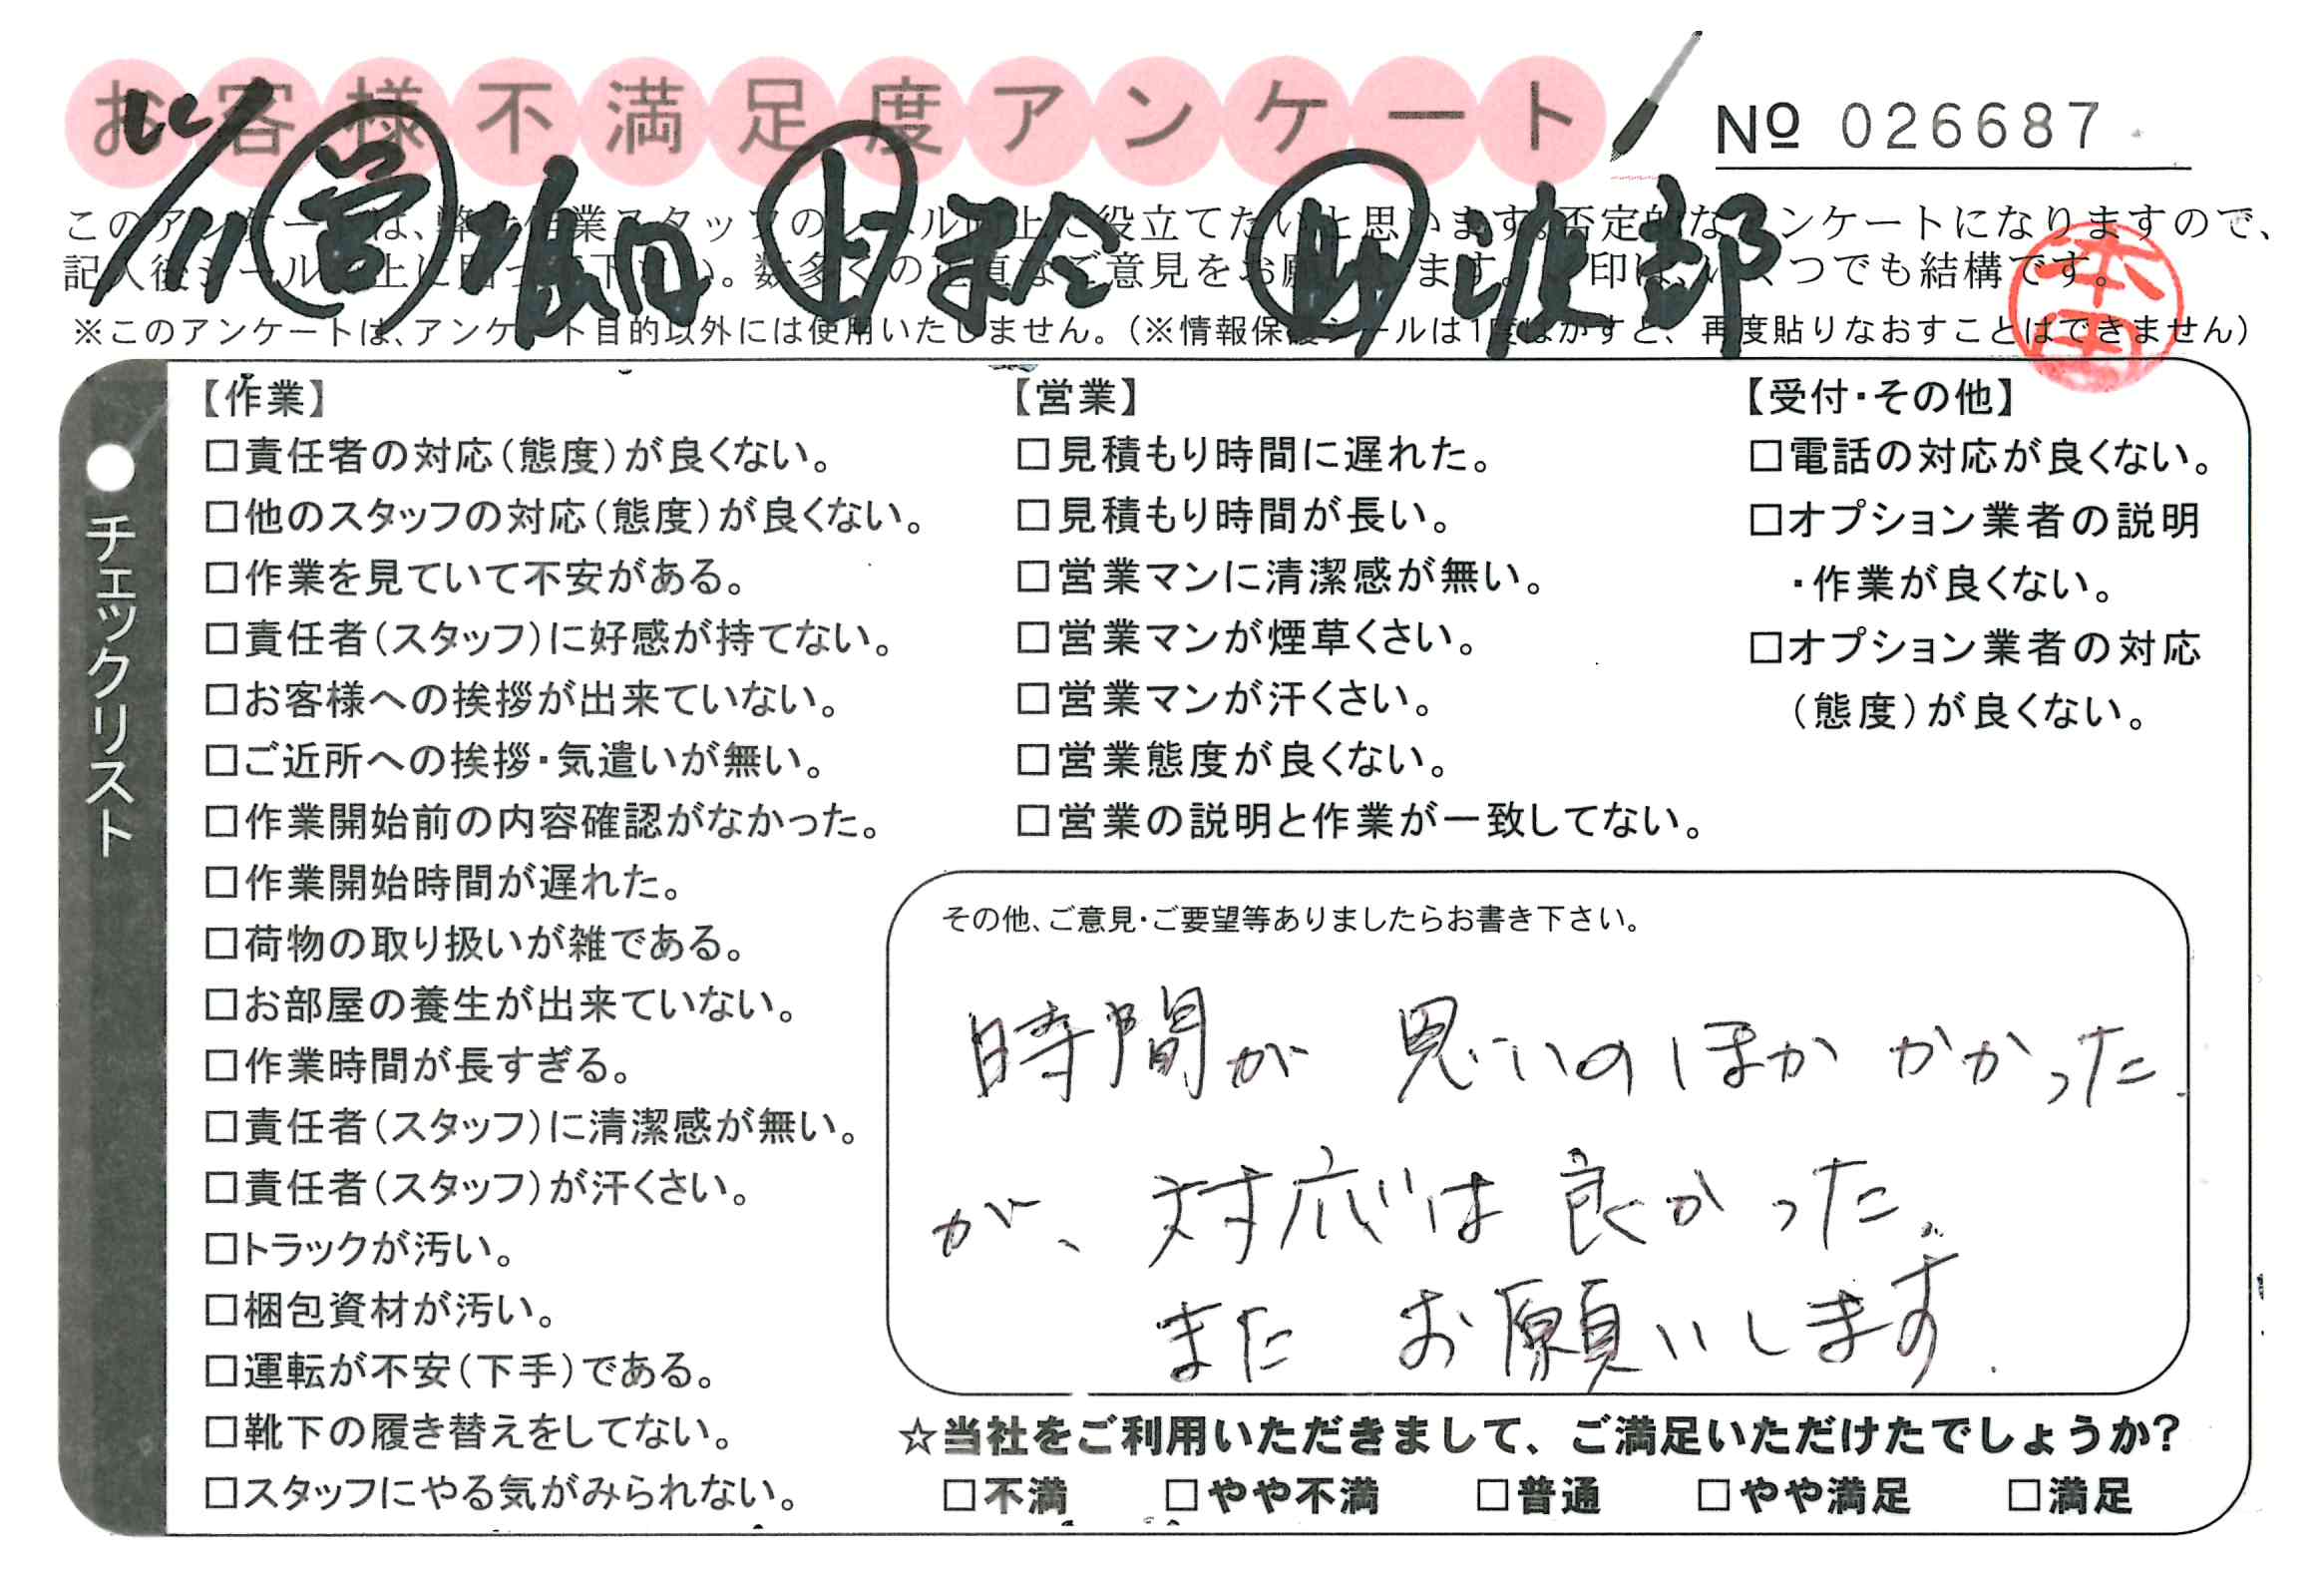 お客様不満足度アンケート
№ 026687
このアンケートは、弊社作業スタッフのレベル向上に役立てたいと思います。否定的なアンケートになりますので、
記入後シールを上に貼って下さい。数多くの正直なご意見をお願いします。 印は、いくつでも結構です。
※このアンケートは、アンケート目的以外には使用いたしません。(※情報保護シールは1度はがすと、再度貼りなおすことはできません)
営 上 助
チェックリスト
【作業】
□責任者の対応(態度)が良くない。
□他のスタッフの対応(態度)が良くない。
□作業を見ていて不安がある。
□責任者(スタッフ)に好感が持てない。
□お客様への挨拶が出来ていない。
□ご近所への挨拶・気遣いが無い。
□作業開始前の内容確認がなかった。
□作業開始時間が遅れた。
□荷物の取り扱いが雑である。
□お部屋の養生が出来ていない。
□作業時間が長すぎる。
□責任者(スタッフ)に清潔感が無い。
□責任者(スタッフ)が汗くさい。
□トラックが汚い。
□梱包資材が汚い。
□運転が不安(下手)である。
□靴下の履き替えをしてない。
□スタッフにやる気がみられない。
【営業】
□見積もり時間に遅れた。
□見積もり時間が長い。
□営業マンに清潔感が無い。
□営業マンが煙草くさい。
□営業マンが汗くさい。
□営業態度が良くない。
□営業の説明と作業が一致してない。
【受付・その他】
□電話の対応が良くない。
□オプション業者の説明
・作業が良くない。
□オプション業者の対応
(態度)が良くない。
その他、ご意見・ご要望等ありましたらお書き下さい。
時間が 思いのほか かかった
が、対応は良かった。
また お願いします.
☆当社をご利用いただきまして、ご満足いただけたでしょうか?
□不満 □やや不満 □普通 □やや満足 □満足